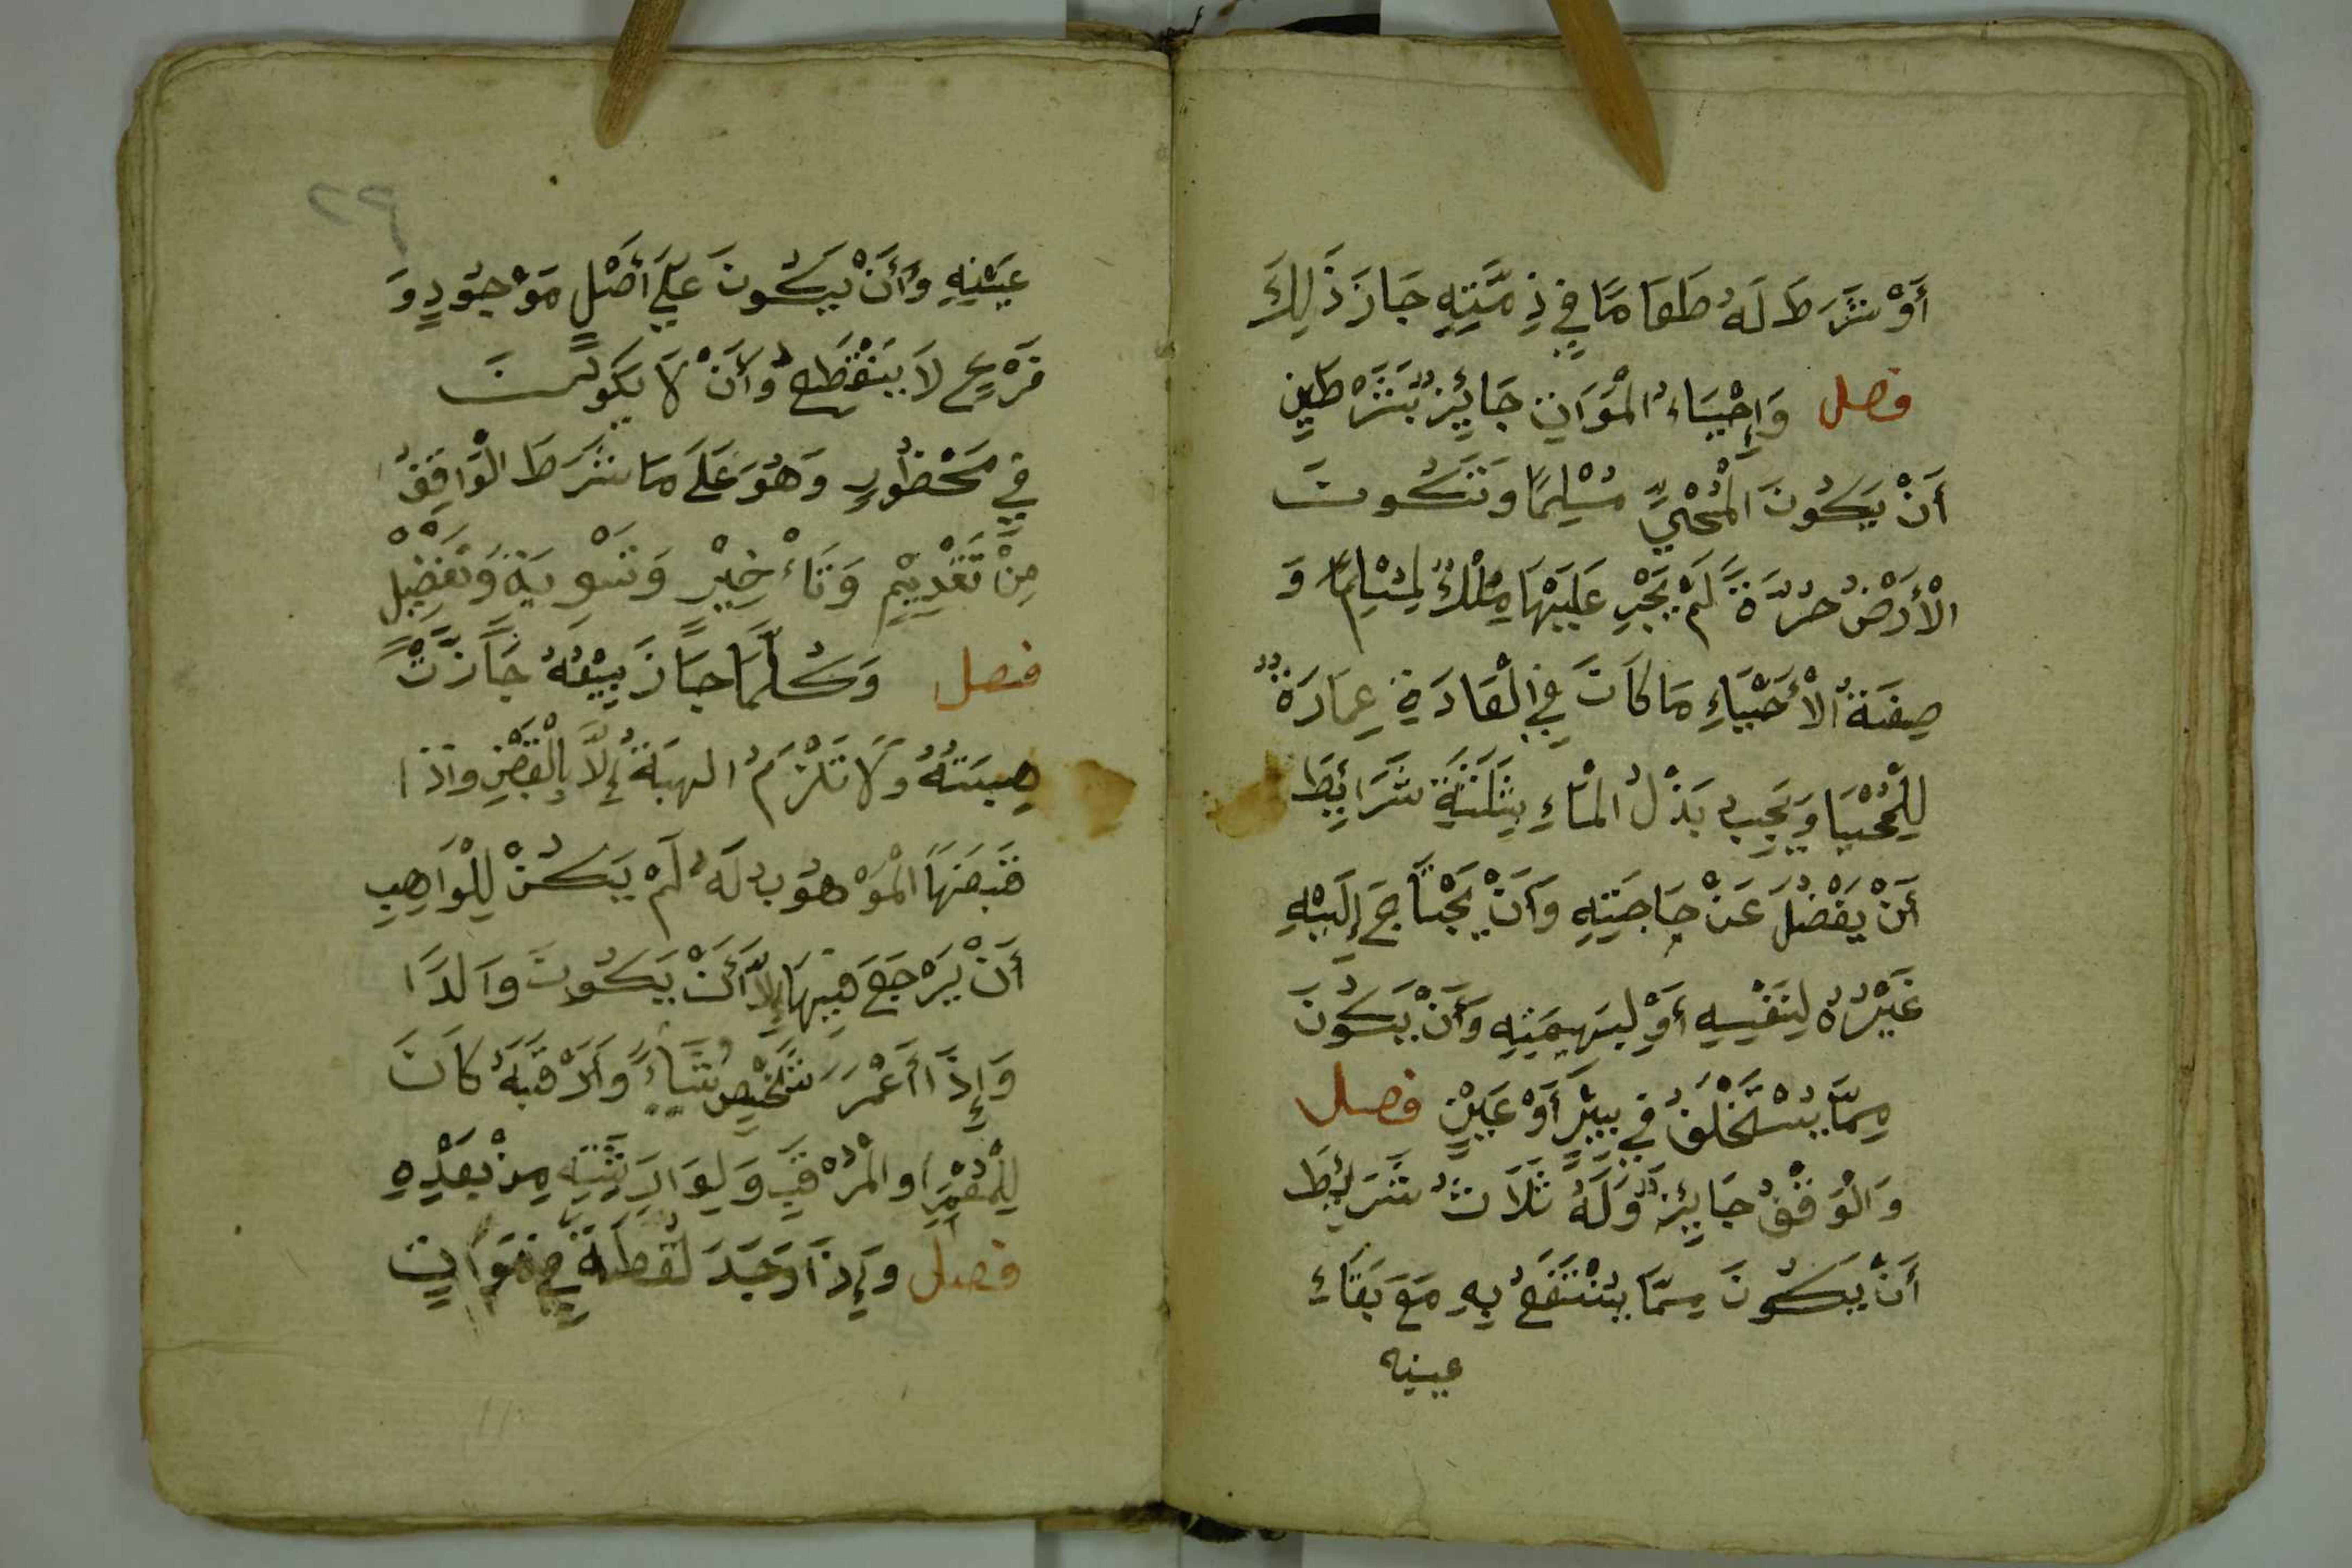 أَوْ شَرَطَ لَهُ طَعَامًا فِي ذِمَّتِهِ جَازَ ذَلِكَ
فصل وَإِحْيَاءُ الْمَوَاتِ جَائِزٌ بِشَرْطَيْنِ
أَنْ يَكُونَ الْمُحْيِيُّ مُسْلِمًا وَتَكُوتَ
الْأَرْضُ حُرَّةً لَمْ يَجْرِ عَلَيْهَا مِلْكٌ لِمُسْلِمٍ وَ
صِفَةُ الْأَحْيَاءِ مَا كَانَ فِي الْعَادَةِ عِمَارَةٌ
لِلْمُحْيَا وَيَجِبُ بَذْلُ الْمَاءِ بِثَلَثَةِ شَرَايِطَ
أَنْ يَفْضُلَ عَنْ حَاجَتِهِ وَأَنْ يَحْتَاجَ إِلَيْهِ
غَيْرُهُ لِنَفْسِهِ أَوْ لِبَهِيمَتِهِ وَأَنْ يَكُونَ
مِمَّا يُسْتَخْلَفُ فِي بِيْرٍ أَوْ عَيْنٍ فصل
وَالْوَقْفُ جَايِزٌ وَلَهُ ثَلَاثُ شَرَيِطَ
أَنْ يَكُونَ مِمَّا يُنْتَفَعُ بِهِ مَعَ بَقَاءِ
عينه
٢٩
عَيْنِهِ وَأَنْ يَكُونَ عَلَى أَصْلٍ مَوْجُودٍ وَ
فَرْعٍ لَا يَنْقَطِعُ وَأَنْ لَا يَكُونَ
فِي مَحْظُورٍ وَهُوَ عَلَى مَا شَرَطَ الْوَاقِفُ
مِنْ تَقْدِيْمٍ وَتَأْخِيْرٍ وَتَسْوِيَةٍ وَتَفْضِيْلٍ
فصل وَكُلَّمَا جَازَ بَيْعُهُ جَازَتْ
هِبَتُهُ وَلَا تَلْزَمُ الهِبَةُ إِلَّا بِالْقَبْضِ وَاذَا
قَبَضَهَا الْمَوْهُوبُ لَهُ لَمْ يَكُنْ لِلْوَاهِبِ
أَنْ يَرْجَعَ فِيهَا إِلَّا أَنْ يَكُونَ وَالدًا
وَإِذَا أَعْمَرَ شَخْصٌ شَيْاءً وَأَرْقَبَهُ كَانَ
لِلْمُعْمَرِ او الْمُرْقَبِ وَلِوَارِثَتِهِ مِنْ بَعْدِهِ
فصل وَإِذَا وَجَدَ لُقْطَةً فِي مَوَاتٍ